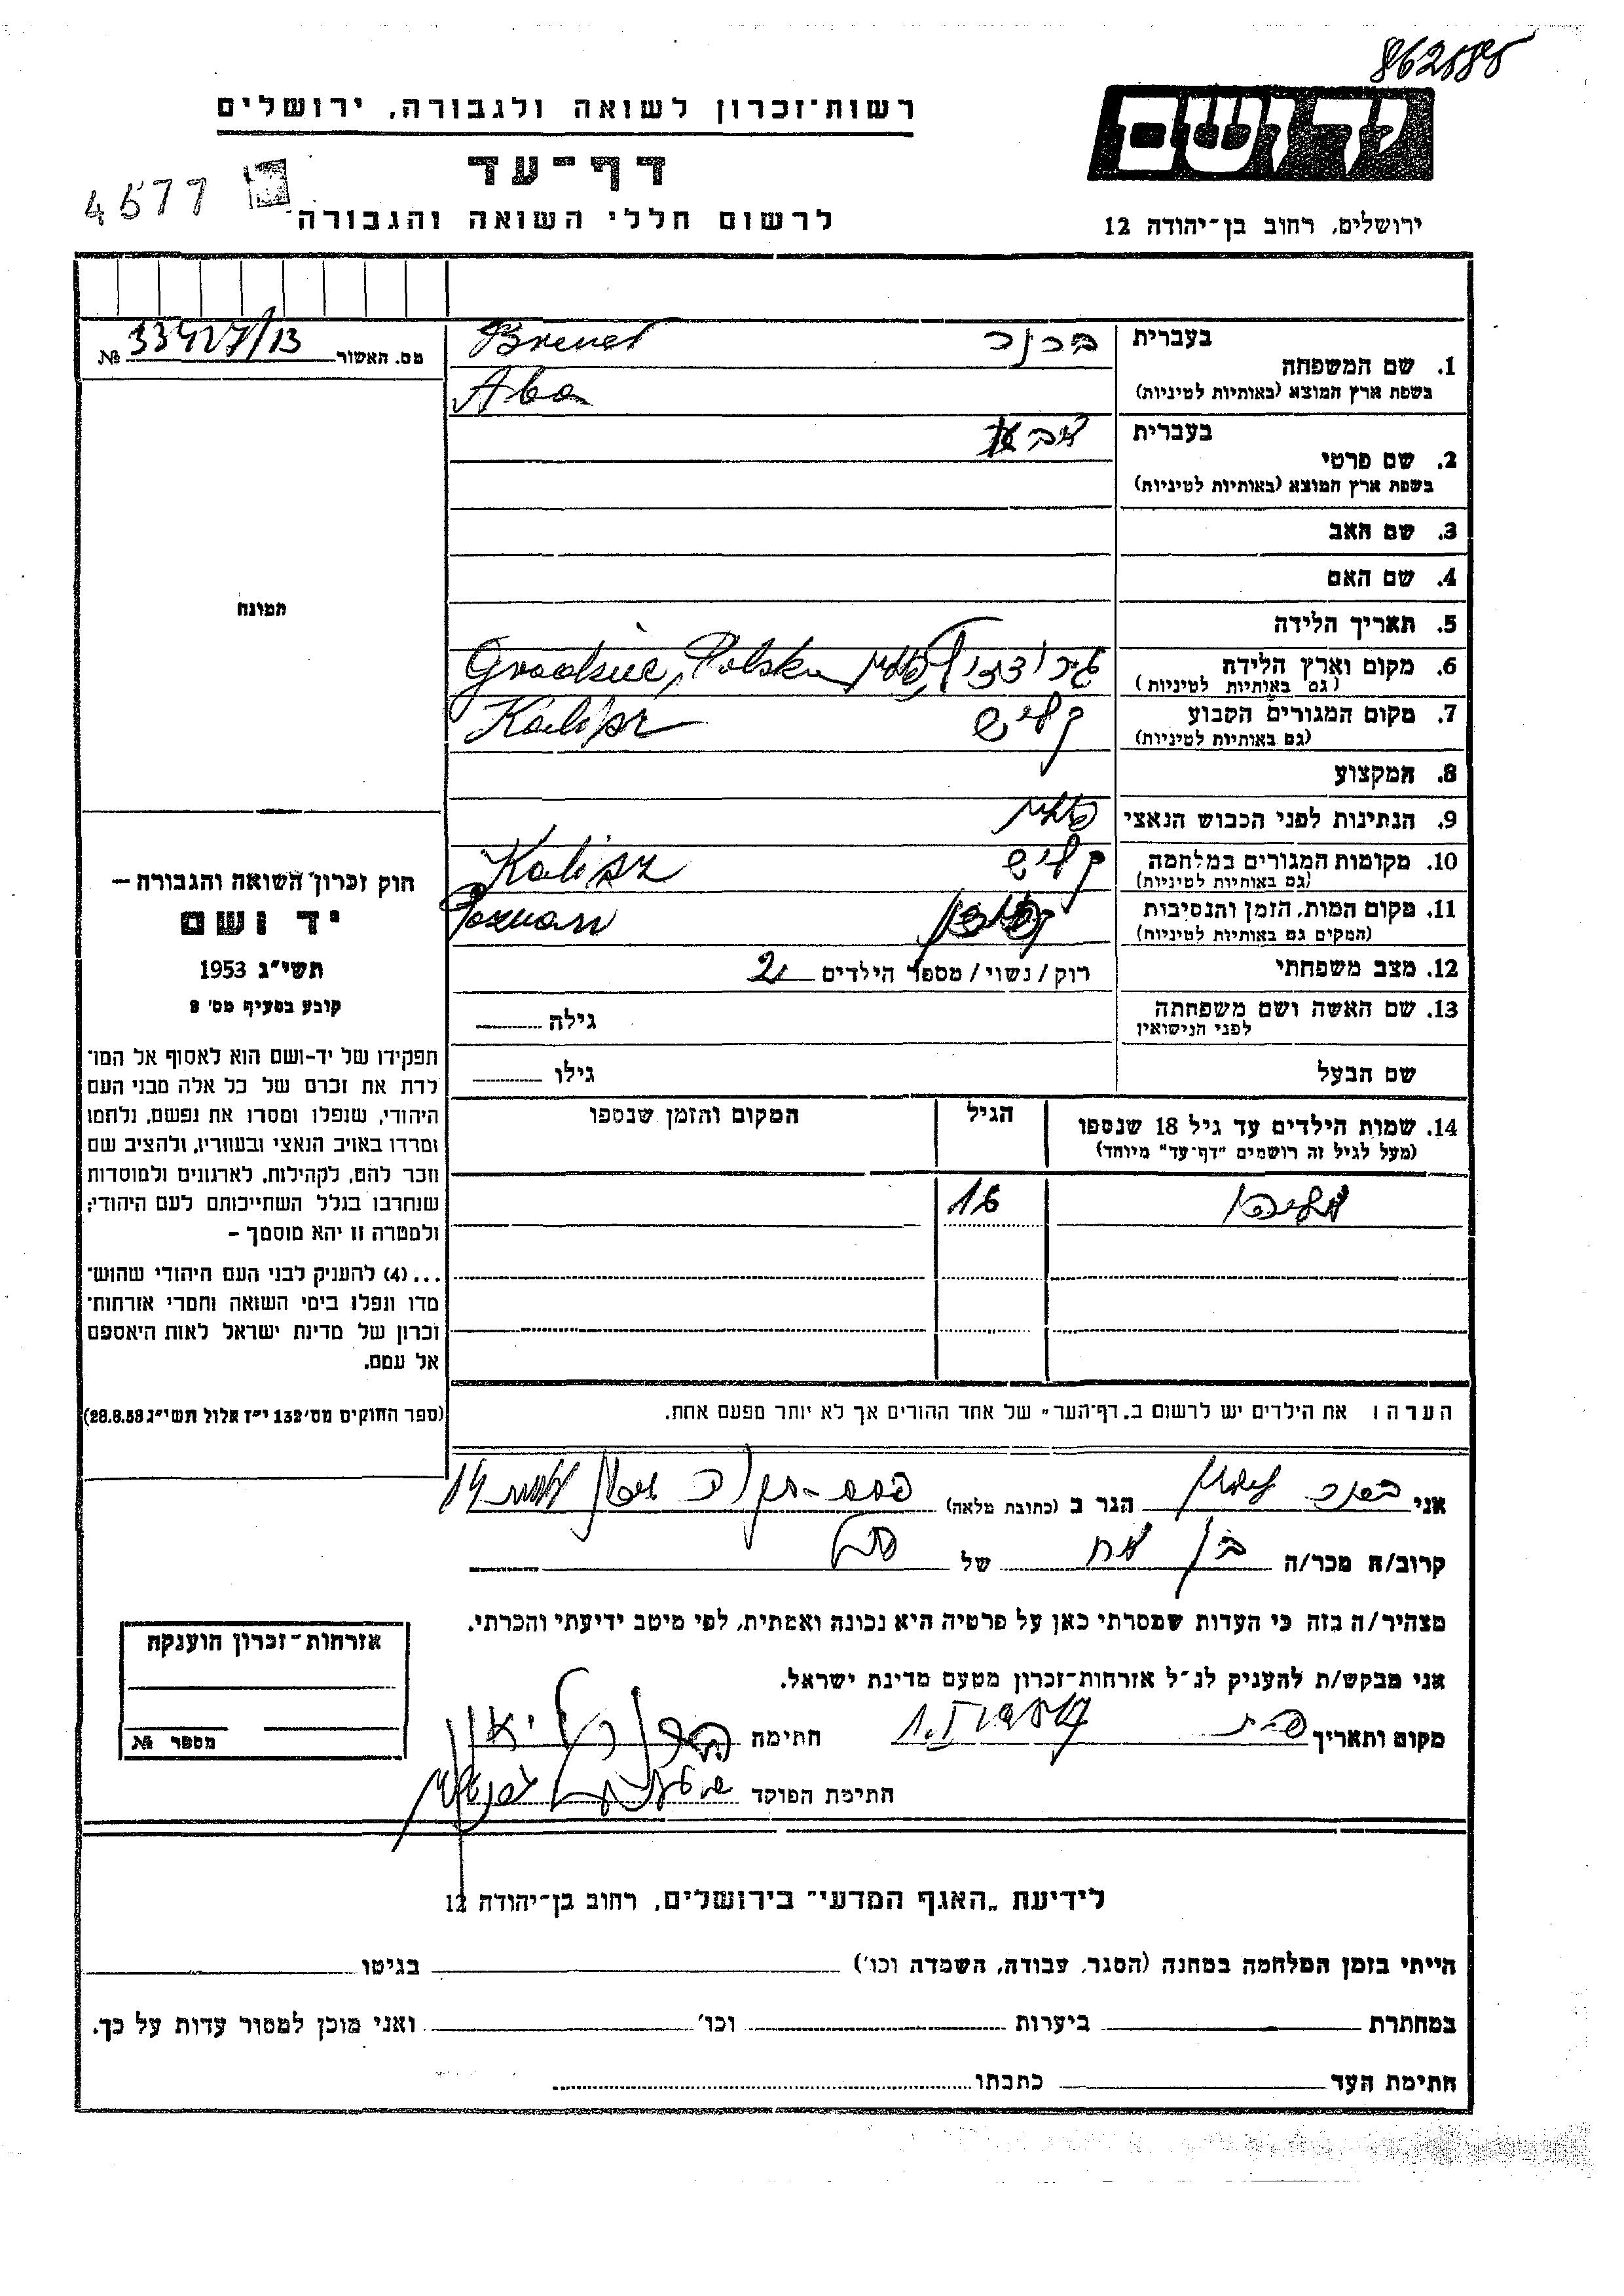 862885
יד ושם
רשות-זכרון לשואה ולגבורה, ירושלים
דף-עד
לרשום חללי השואה והגבורה
4577
ירושלים, רחוב בן-יהודה 12
מס. האשור № 33427/13
בעברית
1. שם המשפחה
בשפת ארץ המוצא (באותיות לטיניות)
ברנר Brener
Aba
בעברית
2. שם פרטי
בשפת ארץ המוצא (באותיות לטיניות)
אבא
3. שם האב
4. שם האם
5. תאריך הלידה
6. מקום וארץ הלידה
(גם באותיות לטיניות)
פולין Grodziec, Polska
7. מקום המגורים הקבוע
(גם באותיות לטיניות)
קליש Kalisz
8. המקצוע
9. הנתינות לפני הכבוש הנאצי
פולנית
10. מקומות המגורים במלחמה
(גם באותיות לטיניות)
קליש Kalisz
11. מקום המות, הזמן והנסיבות
(המקים גם באותיות לטיניות)
פוזנן Poznan
12. מצב משפחתי
רוק / נשוי / מספר הילדים 2
13. שם האשה ושם משפחתה
לפני הנישואין
גילה
שם הבעל
גילו
14. שמות הילדים עד גיל 18 שנספו
(מעל לגיל זה רושמים "דף-עד" מיוחד)
הגיל
המקום והזמן שנספו
16
הערה: את הילדים יש לרשום ב„דף-העד" של אחד ההורים אך לא יותר מפעם אחת.
המונח
חוק זכרון השואה והגבורה –
יד ושם
תשי״ג 1953
קובע בסעיף מס׳ 2
תפקידו של יד-ושם הוא לאסוף אל המו־
לדת את זכרם של כל אלה מבני העם
היהודי, שנפלו ומסרו את נפשם, נלחמו
ומרדו באויב הנאצי ובעוזריו, ולהציב שם
וזכר להם, לקהילות, לארגונים ולמוסדות
שנחרבו בגלל השתייכותם לעם היהודי;
ולמטרה זו יהא מוסמך –
...(4) להעניק לבני העם היהודי שהוש־
מדו ונפלו בימי השואה והמרי אזרחות־
זכרון של מדינת ישראל לאות היאספם
אל עמם.
(ספר החוקים מס׳ 132 י״ז אלול תשי״ג 28.8.53)
אני ברנר הגר ב (כתובת מלאה)
קרוב/ה מכר/ה בן אח של
מצהיר/ה בזה כי העדות שמסרתי כאן על פרטיה היא נכונה ואמתית, לפי מיטב ידיעתי והכרתי.
אני מבקש/ת להעניק לנ״ל אזרחות-זכרון מטעם מדינת ישראל.
מקום ותאריך חתימה
חתימת הפוקד
אזרחות-זכרון הוענקה
מספר №
לידיעת „האגף המדעי" בירושלים, רחוב בן-יהודה 12
הייתי בזמן המלחמה במחנה (הסגר, עבודה, השמדה וכו׳) בגיטו
במחתרת ביערות וכו׳ ואני מוכן למסור עדות על כך.
חתימת העד כתבתו